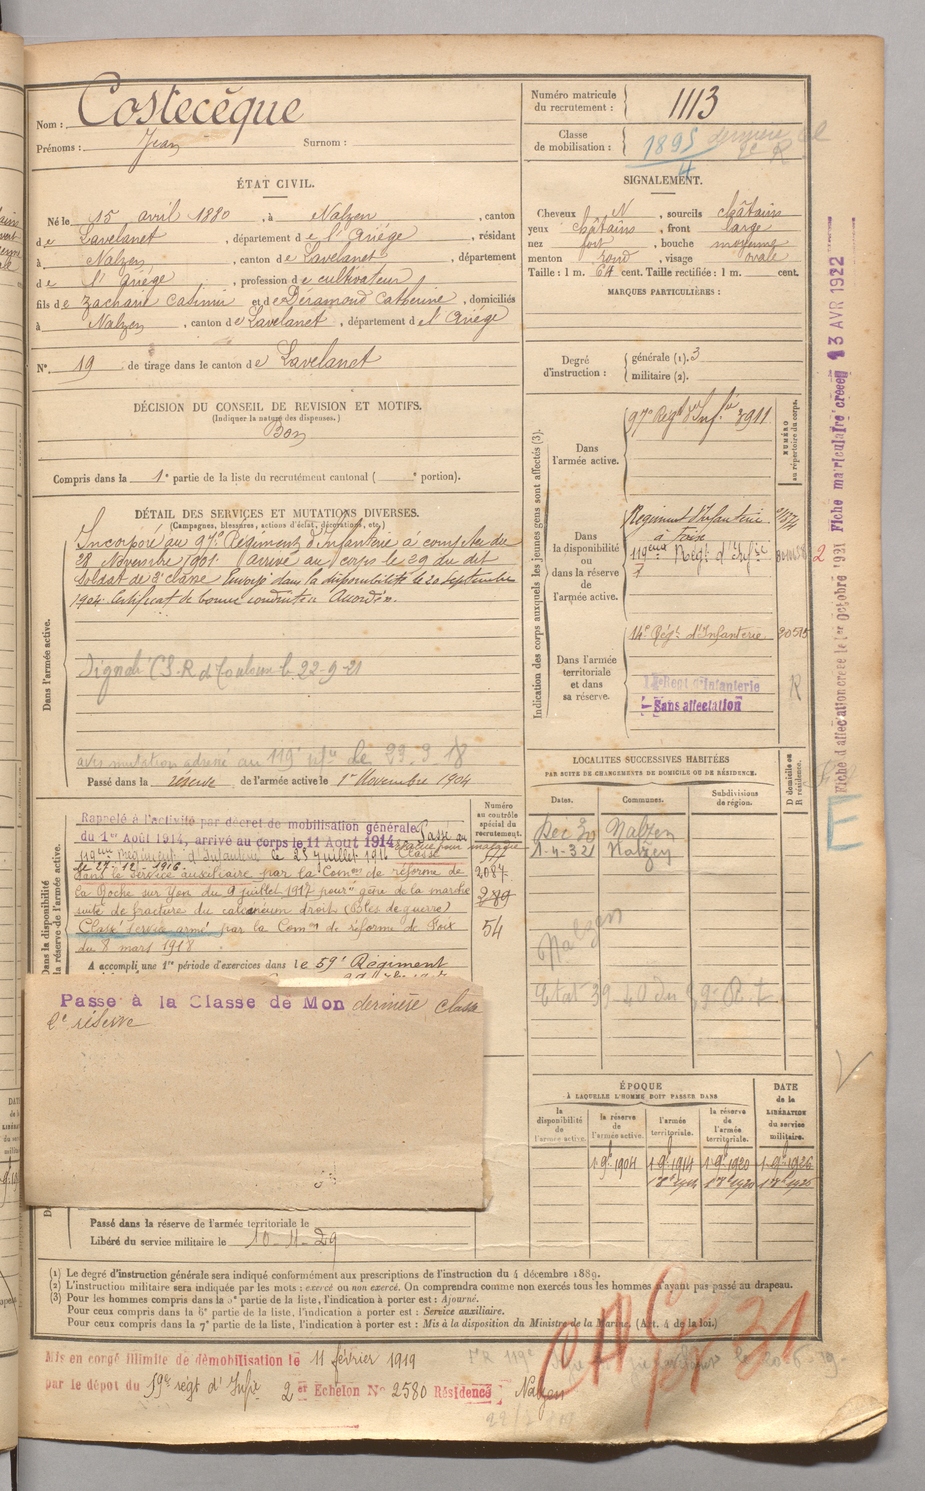 Nom : Costecèque
Prénoms : Jean Surnom :
ÉTAT CIVIL.
Né le 15 avril 1880 , à Nalzen , canton
de Lavelanet , département de l'Ariége , résidant
à Nalzen , canton de Lavelanet , département
de l'Ariége , profession de cultivateur
fils de Zacharie Casimir et de Déramond Catherine , domiciliés
à Nalzen , canton de Lavelanet , département de l'Ariége
N° 19 de tirage dans le canton de Lavelanet
DÉCISION DU CONSEIL DE REVISION ET MOTIFS.
(Indiquer la nature des dispenses.)
Bon
Compris dans la 1e partie de la liste du recrutement cantonal ( e portion).
DÉTAIL DES SERVICES ET MUTATIONS DIVERSES.
(Campagnes, blessures, actions d'éclat, décorations, etc.)
Dans l'armée active.
Incorporé au 97e Régiment d'Infanterie à compter du
28 Novembre 1901 arrivé au corps le 29 du dit
Soldat de 2e classe Envoyé dans la disponibilité le 20 Septembre
1904. Certificat de bonne conduite Accordé.
Signalé C.S.R de Toulouse le 22-9-21
avis mutation adressé au 119e le 23.3.18
Passé dans la réserve de l'armée active le 1er Novembre 1904
Dans la disponibilité
la réserve de l'armée active.
Numéro
au contrôle
spécial du
recrutement.
Rappelé à l'activité par décret de mobilisation générale
du 1er Août 1914, arrivé au corps le 11 Août 1914. Passé au
119ème Régiment d'Infanterie le 25 juillet 1916 Classé
le 27-12-1916
dans le service auxiliaire par la Comon de réforme de
la Roche sur Yon du 9 juillet 1917 pour gêne de la marche
suite de fracture du calcanéum droit (Bles de guerre)
Classé service armé par la Comon de réforme de Foix
du 8 mars 1918
2087
289
54
A accompli une 1re période d'exercices dans le 59e Régiment
Passé à la Classe de Mon dernière classe
2e réserve
Passé dans la réserve de l'armée territoriale le
Libéré du service militaire le 10-11-29
Numéro matricule
du recrutement : 1113
Classe
de mobilisation : 1895 dernière cl
2e R
4
SIGNALEMENT.
Cheveux N , sourcils châtains
yeux châtains , front large
nez fort , bouche moyenne
menton rond , visage ovale
Taille : 1 m. 64 cent. Taille rectifiée : 1 m. cent.
MARQUES PARTICULIÈRES :
Degré
d'instruction :
générale (1). 3
militaire (2).
Indication des corps auxquels les jeunes gens sont affectés (3).
NUMÉRO
au répertoire du corps.
Dans
l'armée active.
97e Régt d'Infie 3911
Dans
la disponibilité
ou
dans la réserve
de
l'armée active.
Régiment d'Infanterie
à Foix
119ème Régt d'Infie
Dans l'armée
territoriale
et dans
sa réserve.
14e Régt d'Infanterie 30515
Regt d'Infanterie
Sans affectation
R
LOCALITES SUCCESSIVES HABITÉES
PAR SUITE DE CHANGEMENTS DE DOMICILE OU DE RÉSIDENCE.
D domicile ou
R résidence.
Dates. Communes. Subdivisions
de région.
Dec 30 Nalzen
1-4-321 Nalzen
Nalzen
Etat 39 40 du
ÉPOQUE
À LAQUELLE L'HOMME DOIT PASSER DANS
la
disponibilité
de
l'armée active.
la réserve
de
l'armée active.
l'armée
territoriale.
la réserve
de
l'armée
territoriale.
DATE
de la
LIBÉRATION
du service
militaire.
1 9e 1904 1 9e 1914 1 9e 1920 1 9e 1926
Fiche d'affectation créée le 1er Octobre 1931 Fiche matriculaire créée 13 AVR 1922
E
(1) Le degré d'instruction générale sera indiqué conformément aux prescriptions de l'instruction du 4 décembre 1889.
(2) L'instruction militaire sera indiquée par les mots : exercé ou non exercé. On comprendra comme non exercés tous les hommes n'ayant pas passé au drapeau.
(3) Pour les hommes compris dans la 5e partie de la liste, l'indication à porter est : Ajourné.
Pour ceux compris dans la 6e partie de la liste, l'indication à porter est : Service auxiliaire.
Pour ceux compris dans la 7e partie de la liste, l'indication à porter est : Mis à la disposition du Ministre de la Marine. (Art. 4 de la loi.)
Mis en congé illimité de démobilisation le 11 février 1919
par le dépot du 59e régt d'Infie 2 er Echelon No 2580 Résidence Nalzen